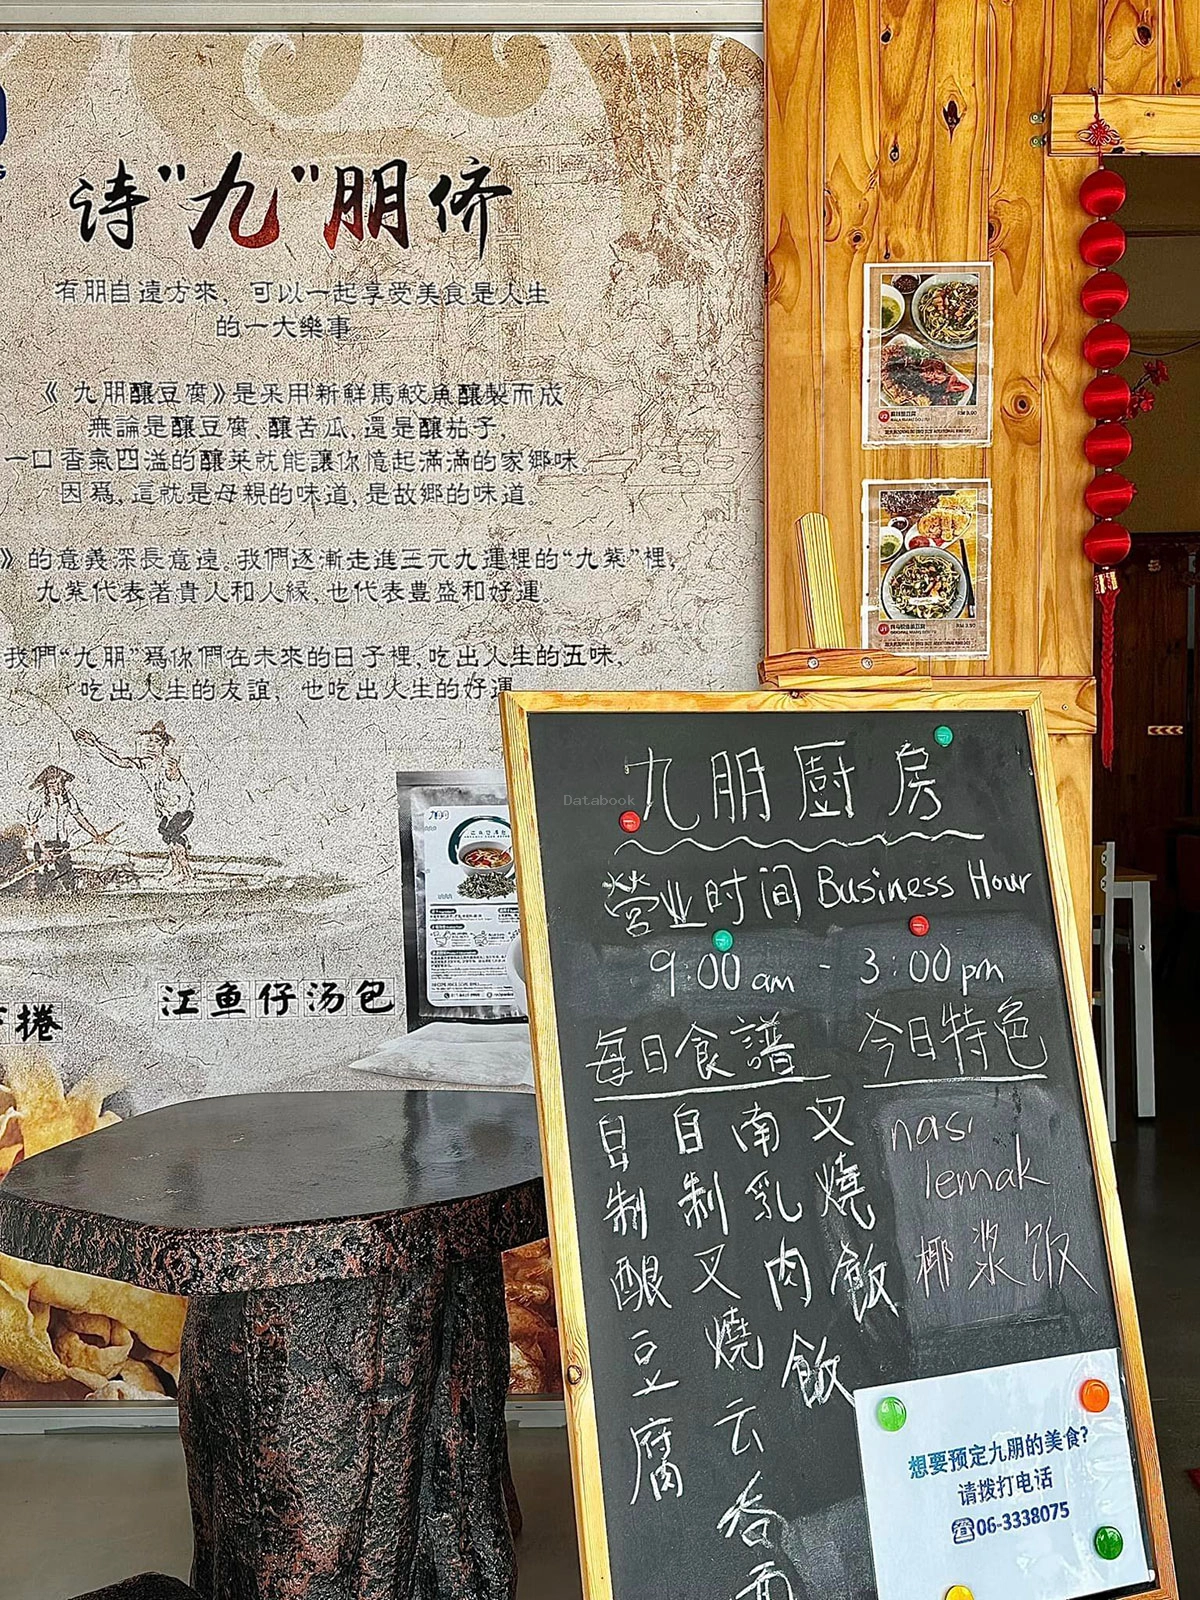 诗"九"朋侪
有朋自遠方來，可以一起享受美食是人生
的一大樂事。
《九朋釀豆腐》是采用新鮮馬鮫魚釀製而成
無論是釀豆腐、釀苦瓜，還是釀茄子，
一口香氣四溢的釀菜就能讓你憶起滿滿的家鄉味。
因爲，這就是母親的味道，是故鄉的味道。
》的意義深長意遠。我們逐漸走進三元九運裡的“九紫”裡，
九紫代表著貴人和人緣，也代表豊盛和好運
我們“九朋”爲你們在未來的日子裡，吃出人生的五味，
吃出人生的友誼，也吃出人生的好運
捲
江鱼仔汤包
RM 9.90
RM 3.90
九朋厨房
Databook
營业时间 Business Hour
9:00am - 3:00pm
每日食譜
自制酿豆腐
自制叉燒云吞面
南乳肉飯
叉燒飯
今日特色
nasi
lemak
椰浆饭
想要预定九朋的美食?
请拨打电话
☎06-3338075